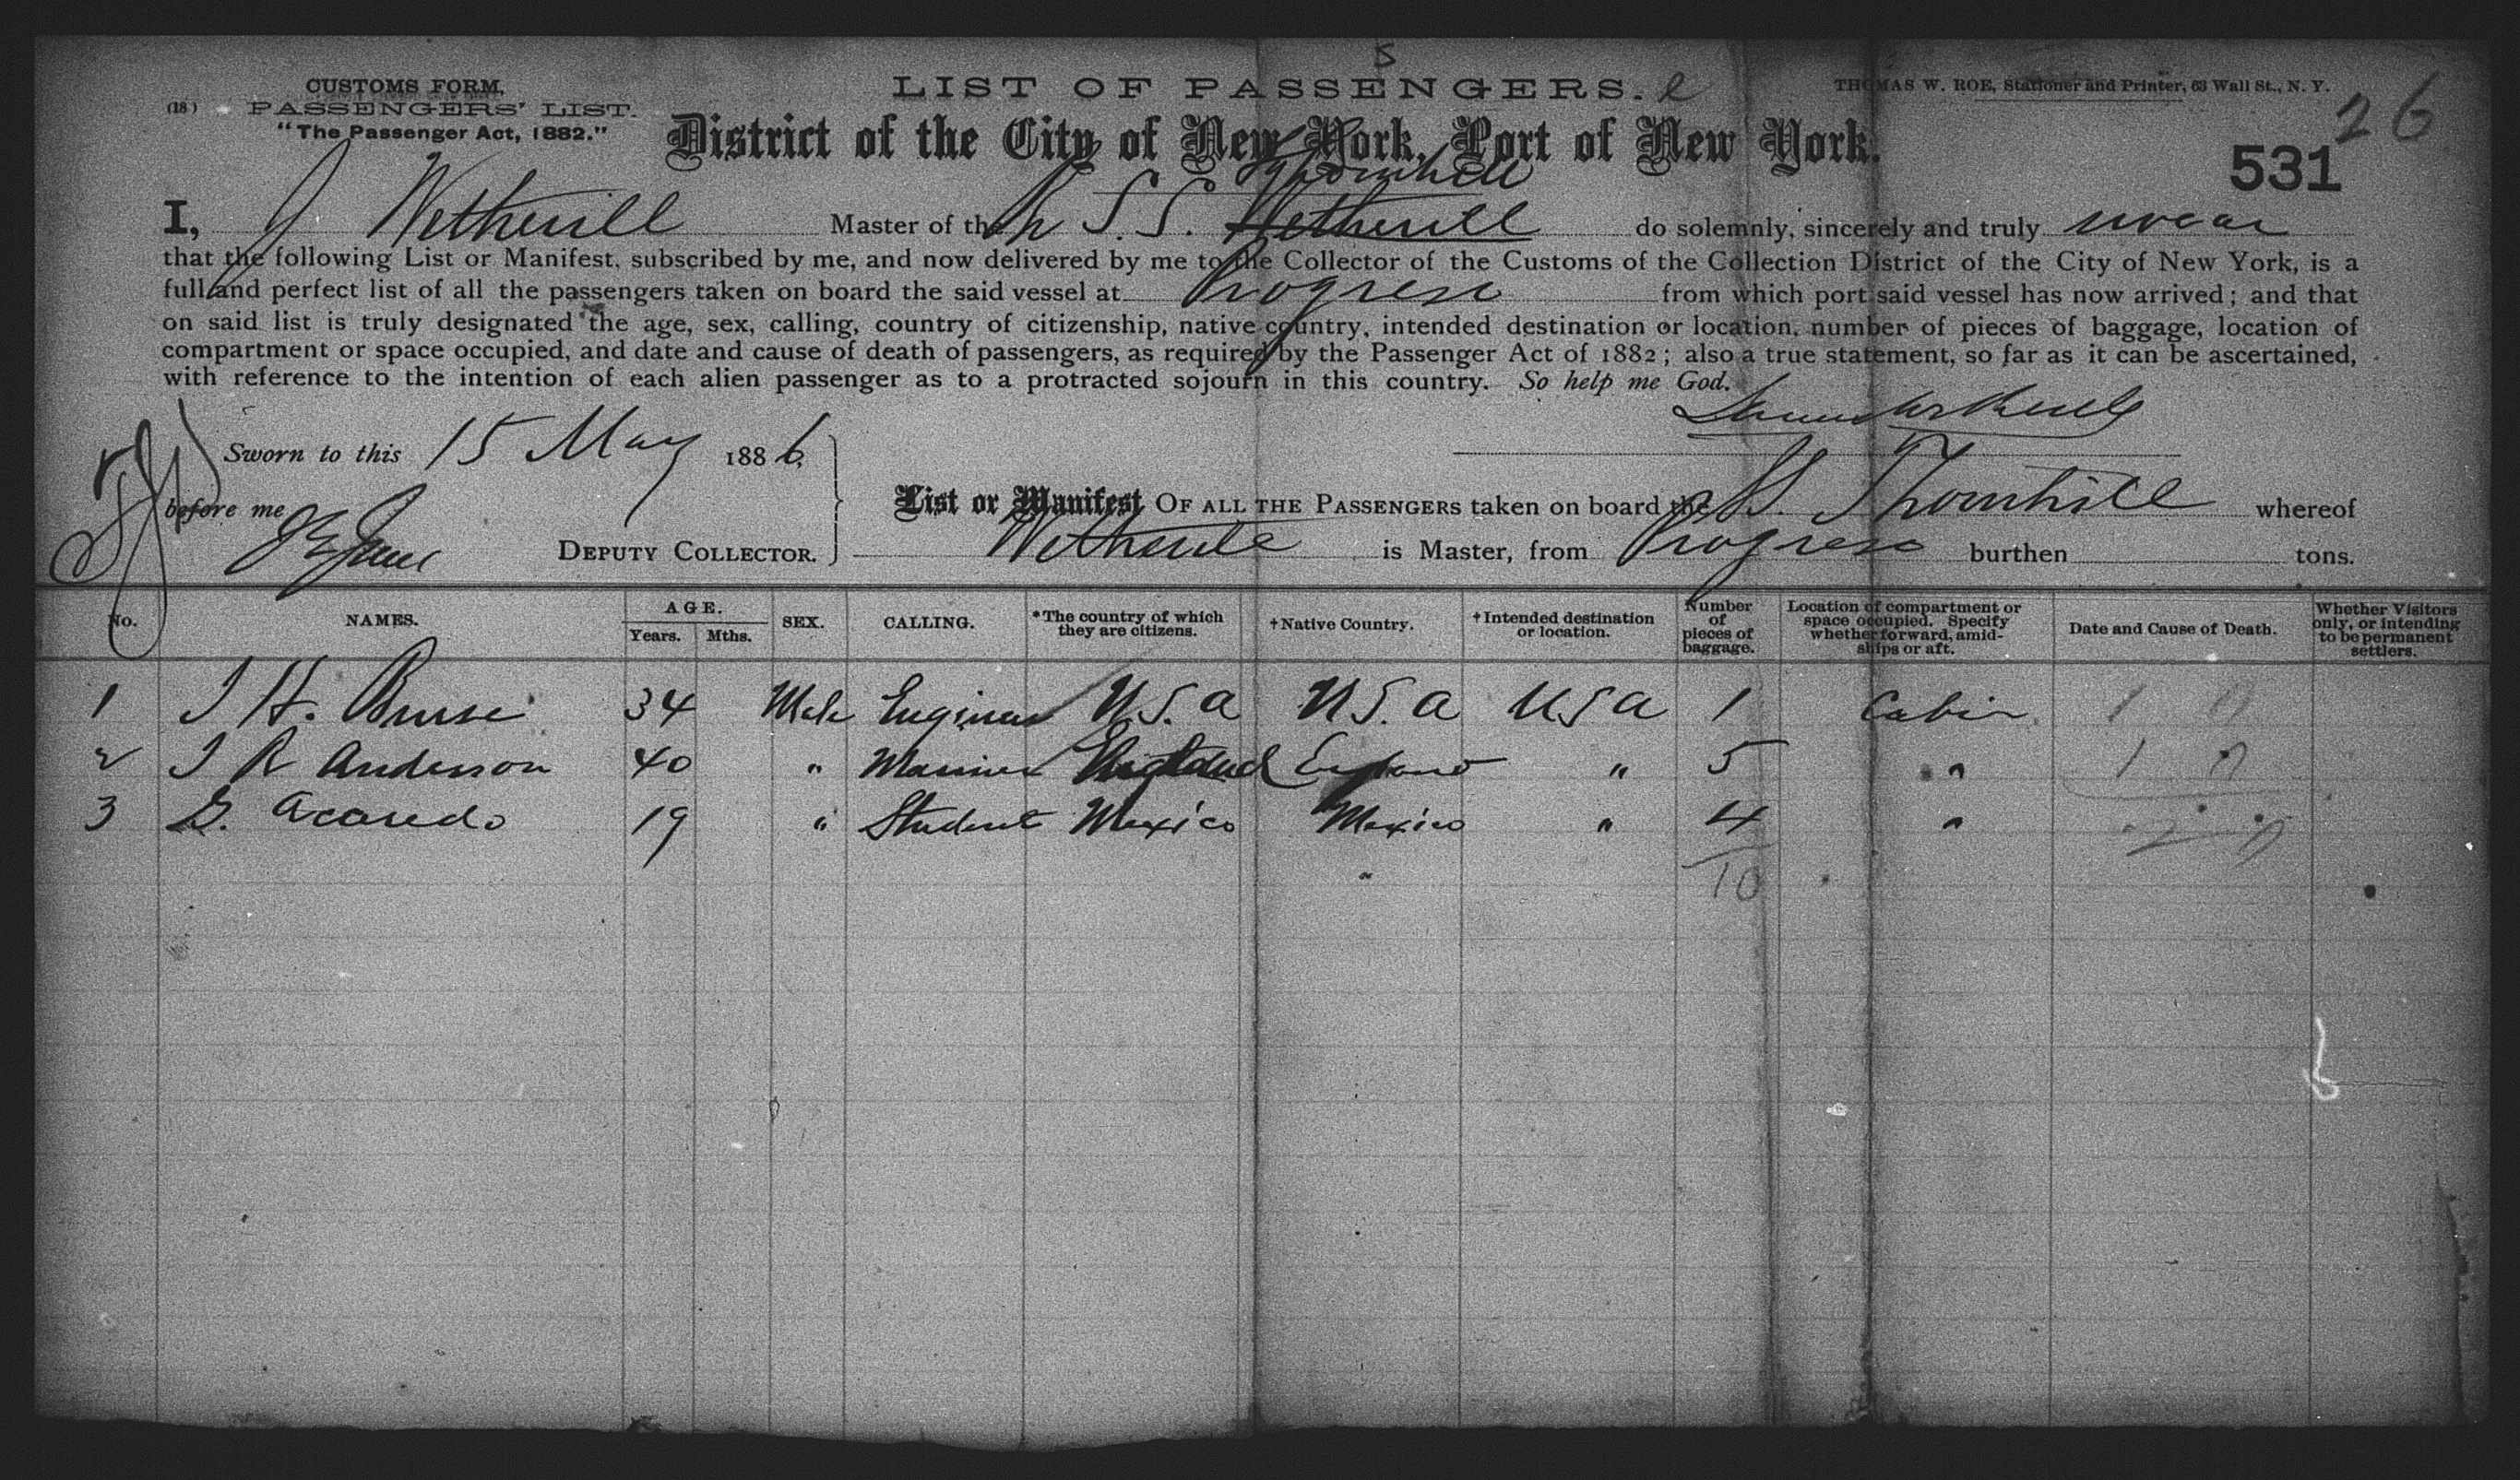 CUSTOMS FORM.
(18) PASSENGERS' LIST.
"The Passenger Act, 1882."
LIST OF PASSENGERS.
THOMAS W. ROE, Stationer and Printer, 63 Wall St., N. Y.
26
531
District of the City of New York, Port of New York.
Thornhill
I, J Wetherill Master of the Br S.S. Wetherill do solemnly, sincerely and truly swear
that the following List or Manifest, subscribed by me, and now delivered by me to the Collector of the Customs of the Collection District of the City of New York, is a
full and perfect list of all the passengers taken on board the said vessel at Progreso from which port said vessel has now arrived; and that
on said list is truly designated the age, sex, calling, country of citizenship, native country, intended destination or location, number of pieces of baggage, location of
compartment or space occupied, and date and cause of death of passengers, as required by the Passenger Act of 1882; also a true statement, so far as it can be ascertained,
with reference to the intention of each alien passenger as to a protracted sojourn in this country. So help me God.
Sworn to this 15 May 1886
before me
DEPUTY COLLECTOR.
List or Manifest OF ALL THE PASSENGERS taken on board the SS. Thornhill whereof
Wetherill is Master, from Progreso burthen tons.
No. NAMES. AGE. Years. Mths. SEX. CALLING. *The country of which they are citizens. †Native Country. †Intended destination or location. Number of pieces of baggage. Location of compartment or space occupied. Specify whether forward, amidships or aft. Date and Cause of Death. Whether Visitors only, or intending to be permanent settlers.
1 J H. 34 Male Engineer U.S.a U.S.a USa 1 Cabin
2 J R Anderson 40 " Mariner England England " 5 "
3 G. 19 " Student Mexico Mexico " 4 "
10